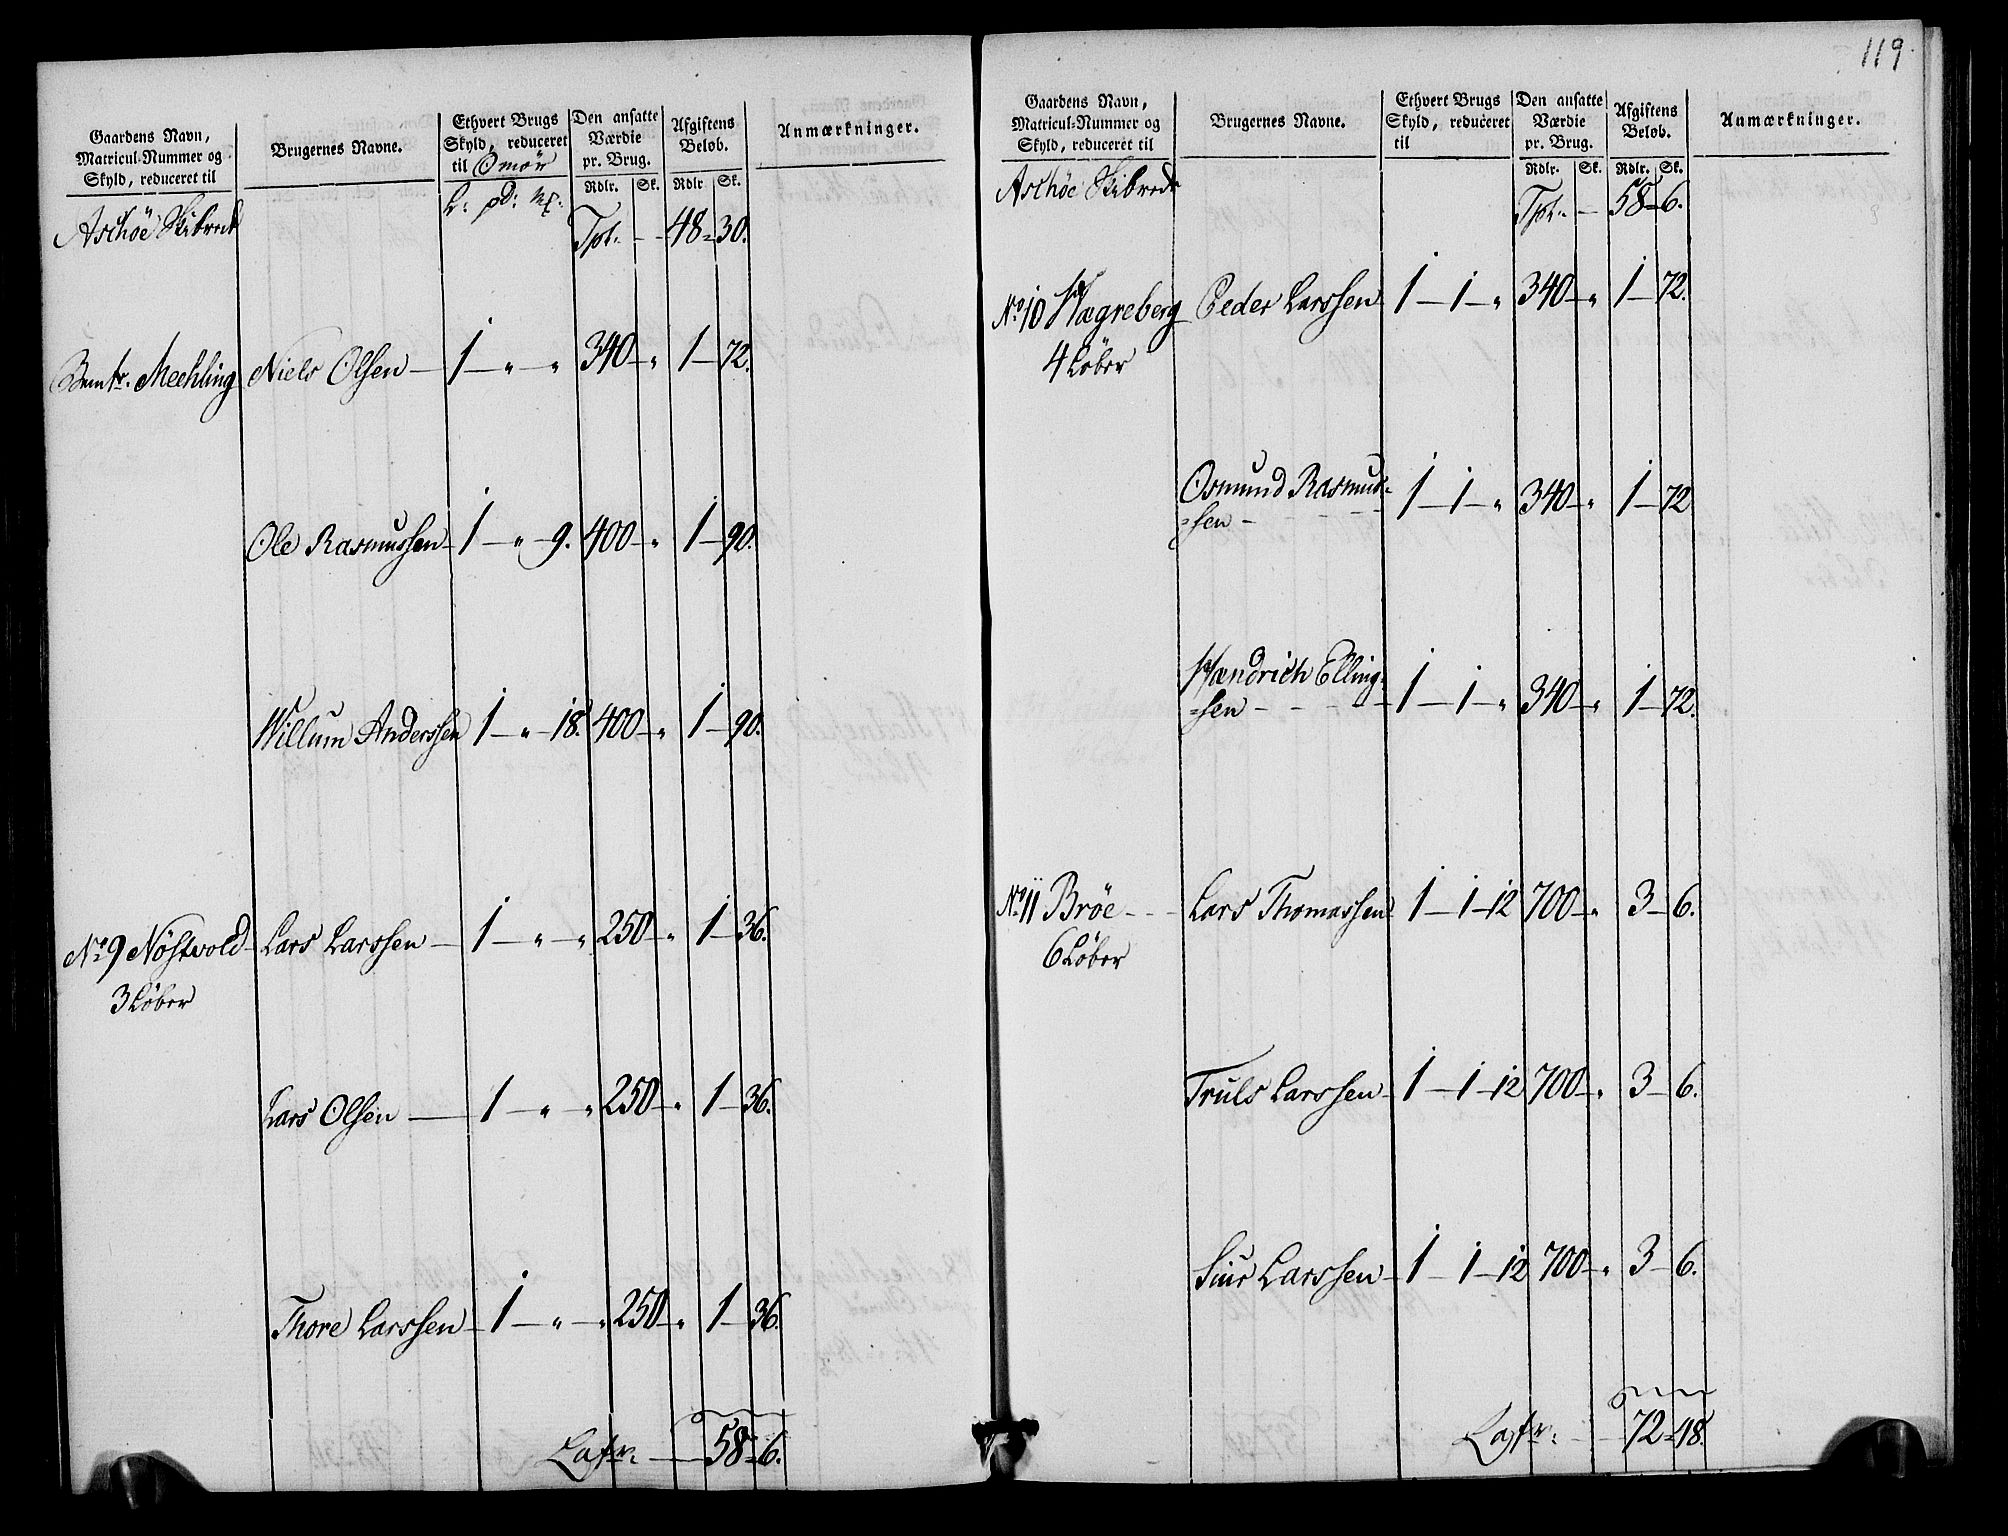 Gaardens Navn,
Matricul-Nummer og
Skyld, reduceret til
Brugernes Navne.
Ethvert Brugs
Skyld, reduceret
til Smör
L: pd: Mk:
Den ansatte
Værdie
pr. Brug.
Rdlr. Sk.
Afgiftens
Beløb.
Rdlr Sk.
Anmærkninger.
Aschöe Skibrede
Tpt. - - 48 = 30.
Bemte. Mechling Niels Olsen — 1 — " — " 340 — " 1 — 72.
Ole Rasmussen — 1 — " — 9. 400 — " 1 — 90.
Willum Anderssen 1 — " — 18. 400 — " 1 — 90.
No 9 Nöstvold — Lars Larssen — 1 — " — " 250 — " 1 — 36.
3 Løber
Lars Olsen — 1 — " — " 250 — " 1 — 36.
Thore Larssen — 1 — " — " 250 — " 1 — 36.
Latr. — 58 = 6.
119.
Gaardens Navn,
Matricul-Nummer og
Skyld, reduceret til
Brugernes Navne.
Ethvert Brugs
Skyld, reduceret
til
Den ansatte
Værdie
pr. Brug.
Rdlr. Sk.
Afgiftens
Beløb.
Rdlr. Sk.
Anmærkninger.
Aschöe Skibrede
Tpt. — 58 = 6.
No 10 Hægreberg Peder Larssen 1 — 1 — " 340 — " 1 — 72.
4 Løber
Osmund Rasmus= 1 — 1 — " 340 — " 1 — 72
=sen - - - -
Hændrich Elling= 1 — 1 — " 340 — " 1 — 72.
=sen - - - -
No 11 Bröe - - Lars Thomassen 1 — 1 — 12 700 — " 3 — 6.
6 Løber
Truls Larssen — 1 — 1 — 12 700 — " 3 — 6.
Siur Larssen — 1 — 1 — 12 700 — " 3 — 6.
Latr: - - 72 = 48.